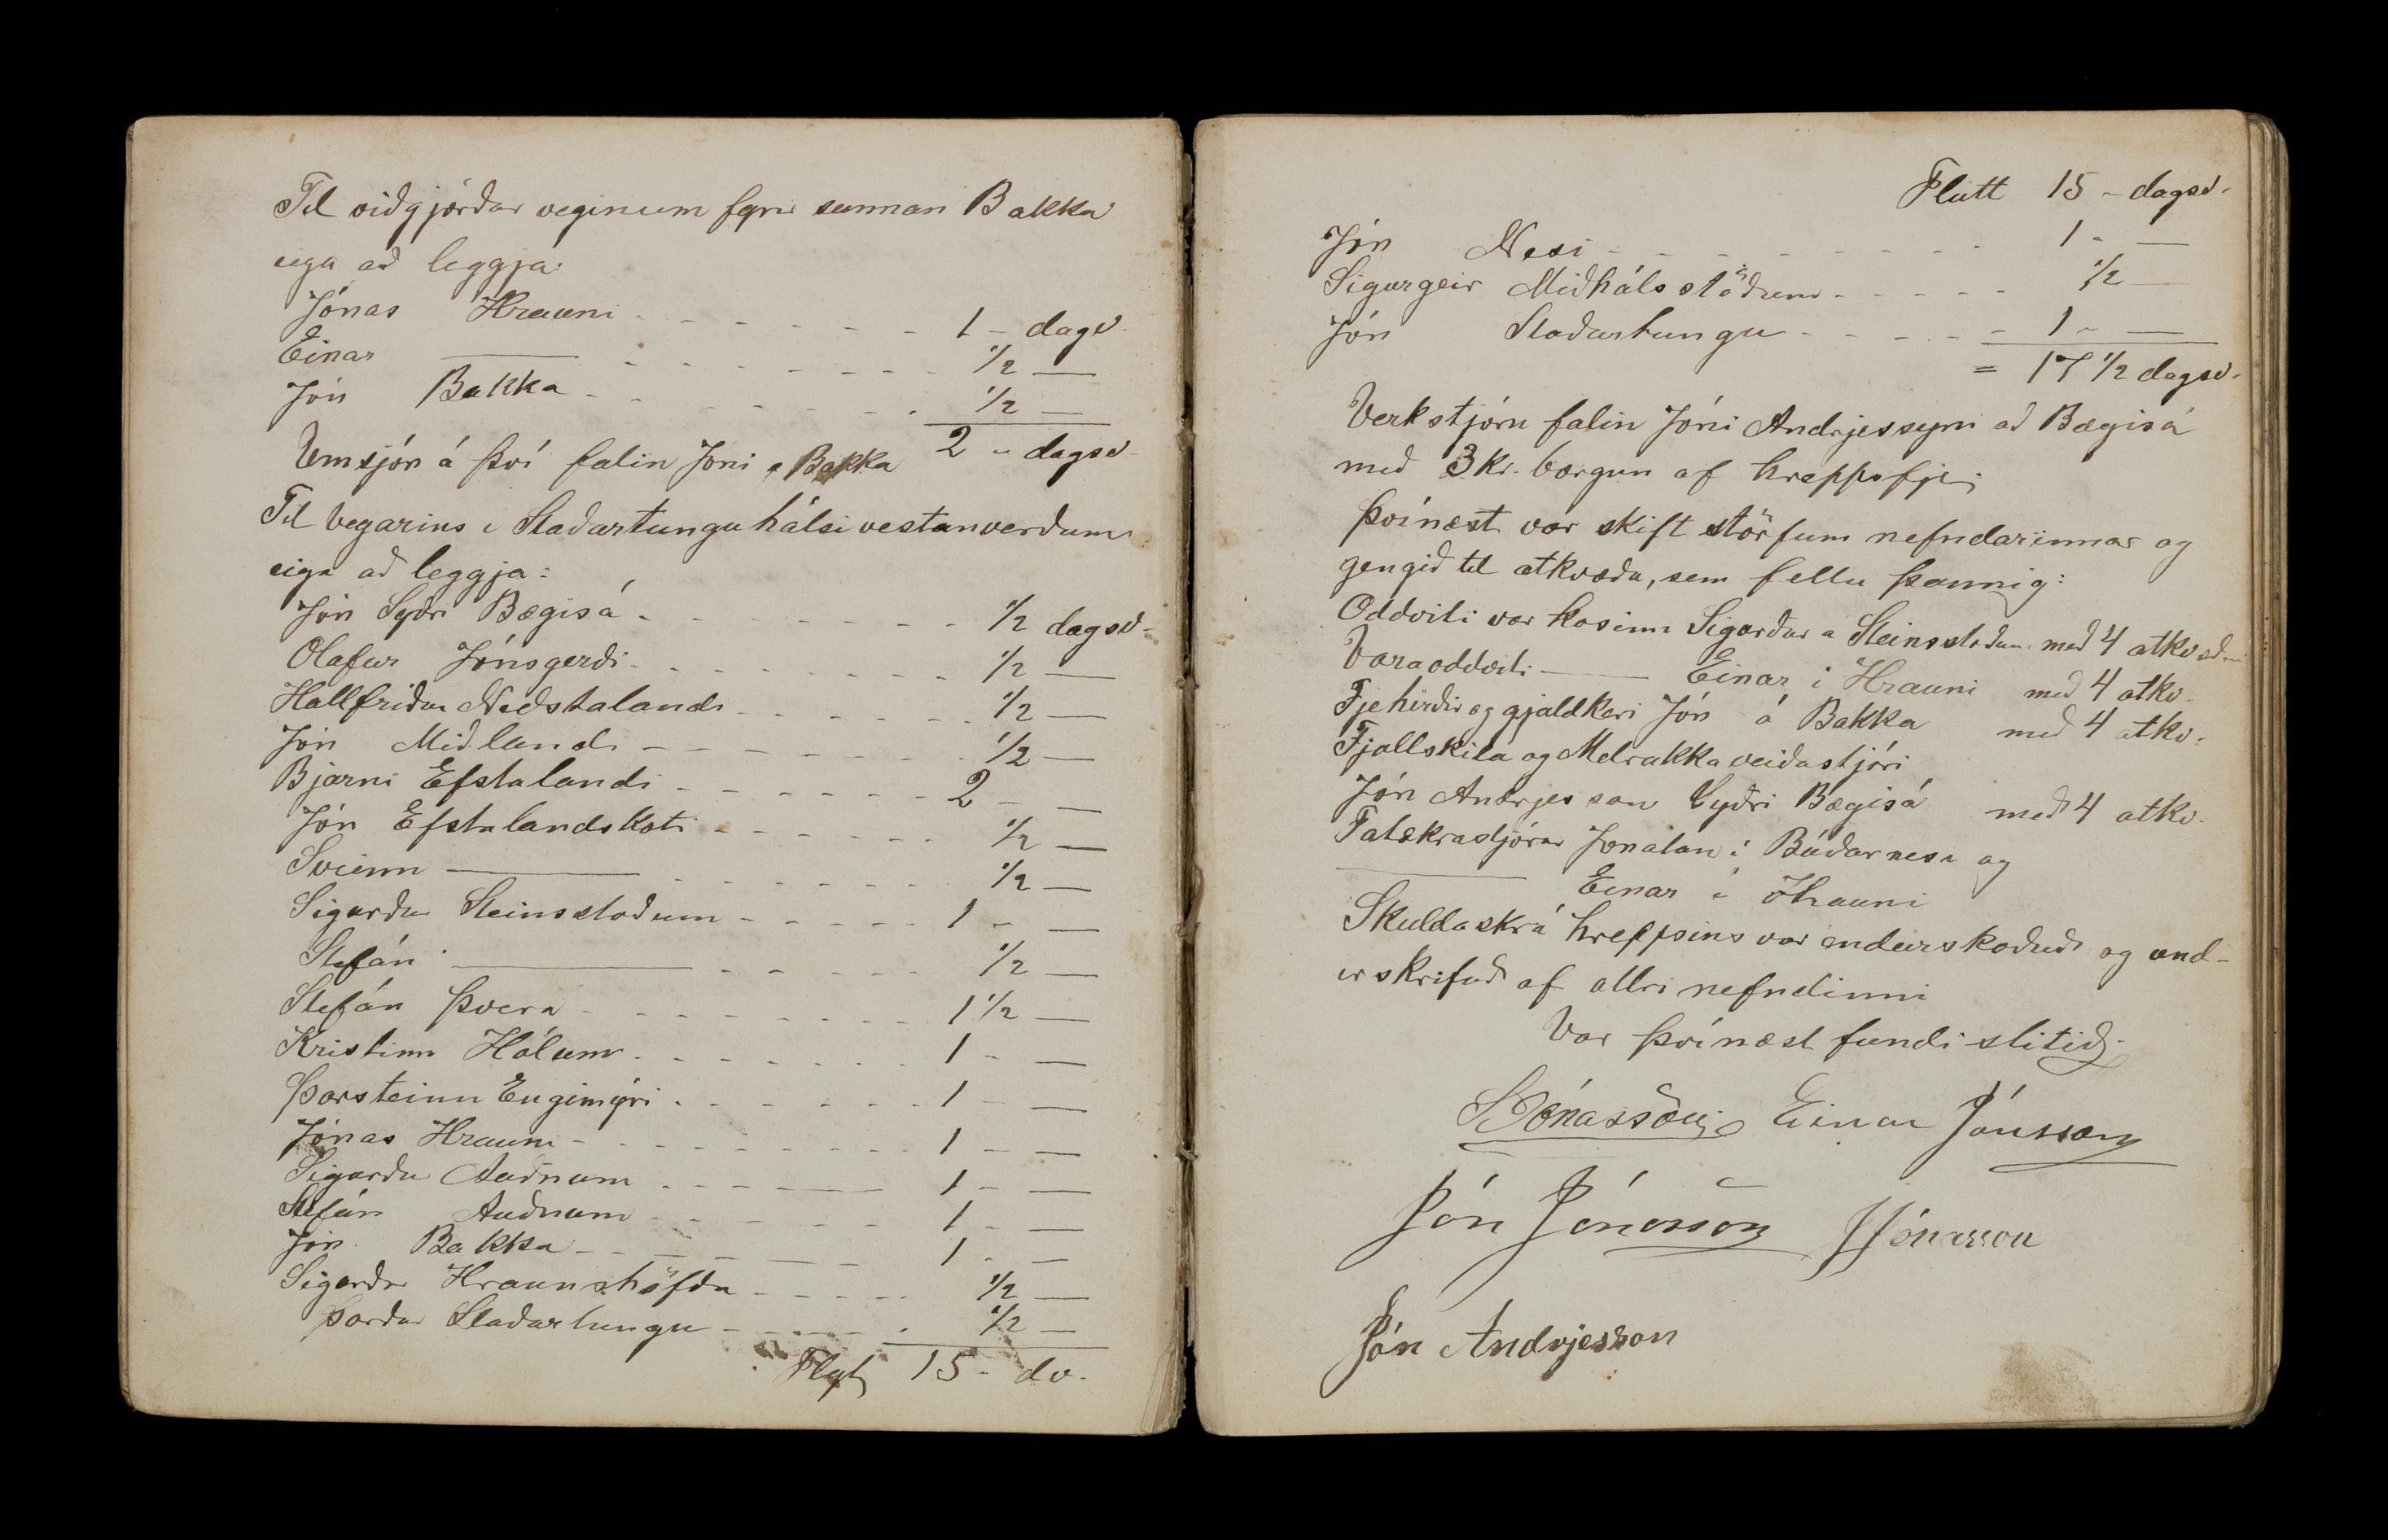 Til viðgjörðar veginum fyrir sunnan Bakka
eiga að leggja:
Jónas Hrauni - - - - - - - 1 - dagsv.
Einar —— - - - - - - - 1/2 —
Jón Bakka - - - - - - - 1/2 —
2 - dagsv.
Umsjón á því falin Jóni á Bakka
Til vegarins í Staðartunguhálsi vestanverðum
eiga að leggja:
Jón Syðri Bægisá - - - - - - - 1/2 dagsv.
Olafur Jónsgerði - - - - - - - 1/2 —
Hallfriður Neðstalandi - - - - - - 1/2 —
Jón Miðlandi - - - - - - - 1/2 —
Bjarni Efstalandi - - - - - - 2 - —
Jón Efstalandskoti - - - - - - 1/2 —
Sveinn —— - - - - - - 1/2 —
Sigurður Steinsstoðum - - - - - 1 - —
Stefán —— - - - - - 1/2 —
Stefán Þverá - - - - - - - 1 1/2 —
Kristinn Hólum - - - - - - 1 - —
Þorsteinn Engimýri - - - - - - 1 - —
Jónas Hrauni - - - - - - - 1 - —
Sigurður Auðnum - - - - — 1 - —
Stefán Auðnum - - - - - - 1 - —
Jón Bakka - - - - - - 1 - —
Sigurður Hraunshöfða - - - - - 1/2 —
Þorður Staðartungu - - - - - 1/2 —
Flyt 15 - dv.
Flutt 15 - dagsv.
Jón Nesi - - - - - - - - 1 - —
Sigurgeir Miðhálsstöðum - - - - - 1/2 —
Jón Staðartungu - - - - - 1 - —
= 17 1/2 dagsv.
Verkstjórn falin Jóni Andrjessyni að Bægisá
með 3 kr. borgun af hreppsfje.
Þvínæst var skift störfum nefndarinnar og
gengið til atkvæða, sem fellu þannig:
Oddviti var kosinn Sigurður a Steinsstoðum með 4 atkvæð.
Varaoddviti —— Einar i Hrauni með 4 atkv.
Fjehirðir og gjaldkeri Jón á Bakka með 4 atkv.
Fjallskila og Melrakkaveiðastjóri
Jón Andrjesson Syðri Bægisá með 4 atkv.
Fatækrastjórar Jonatan í Búðarnesi og
—— Einar i Hrauni
Skuldaskrá hreppsins var endurskoðuð og und-
irskrifuð af allri nefndinni
Var þvínæst fundi slitið.
S Jónasson Einar Jónsson
Jón Jónasson J Jónasson
Jón Andrjesson